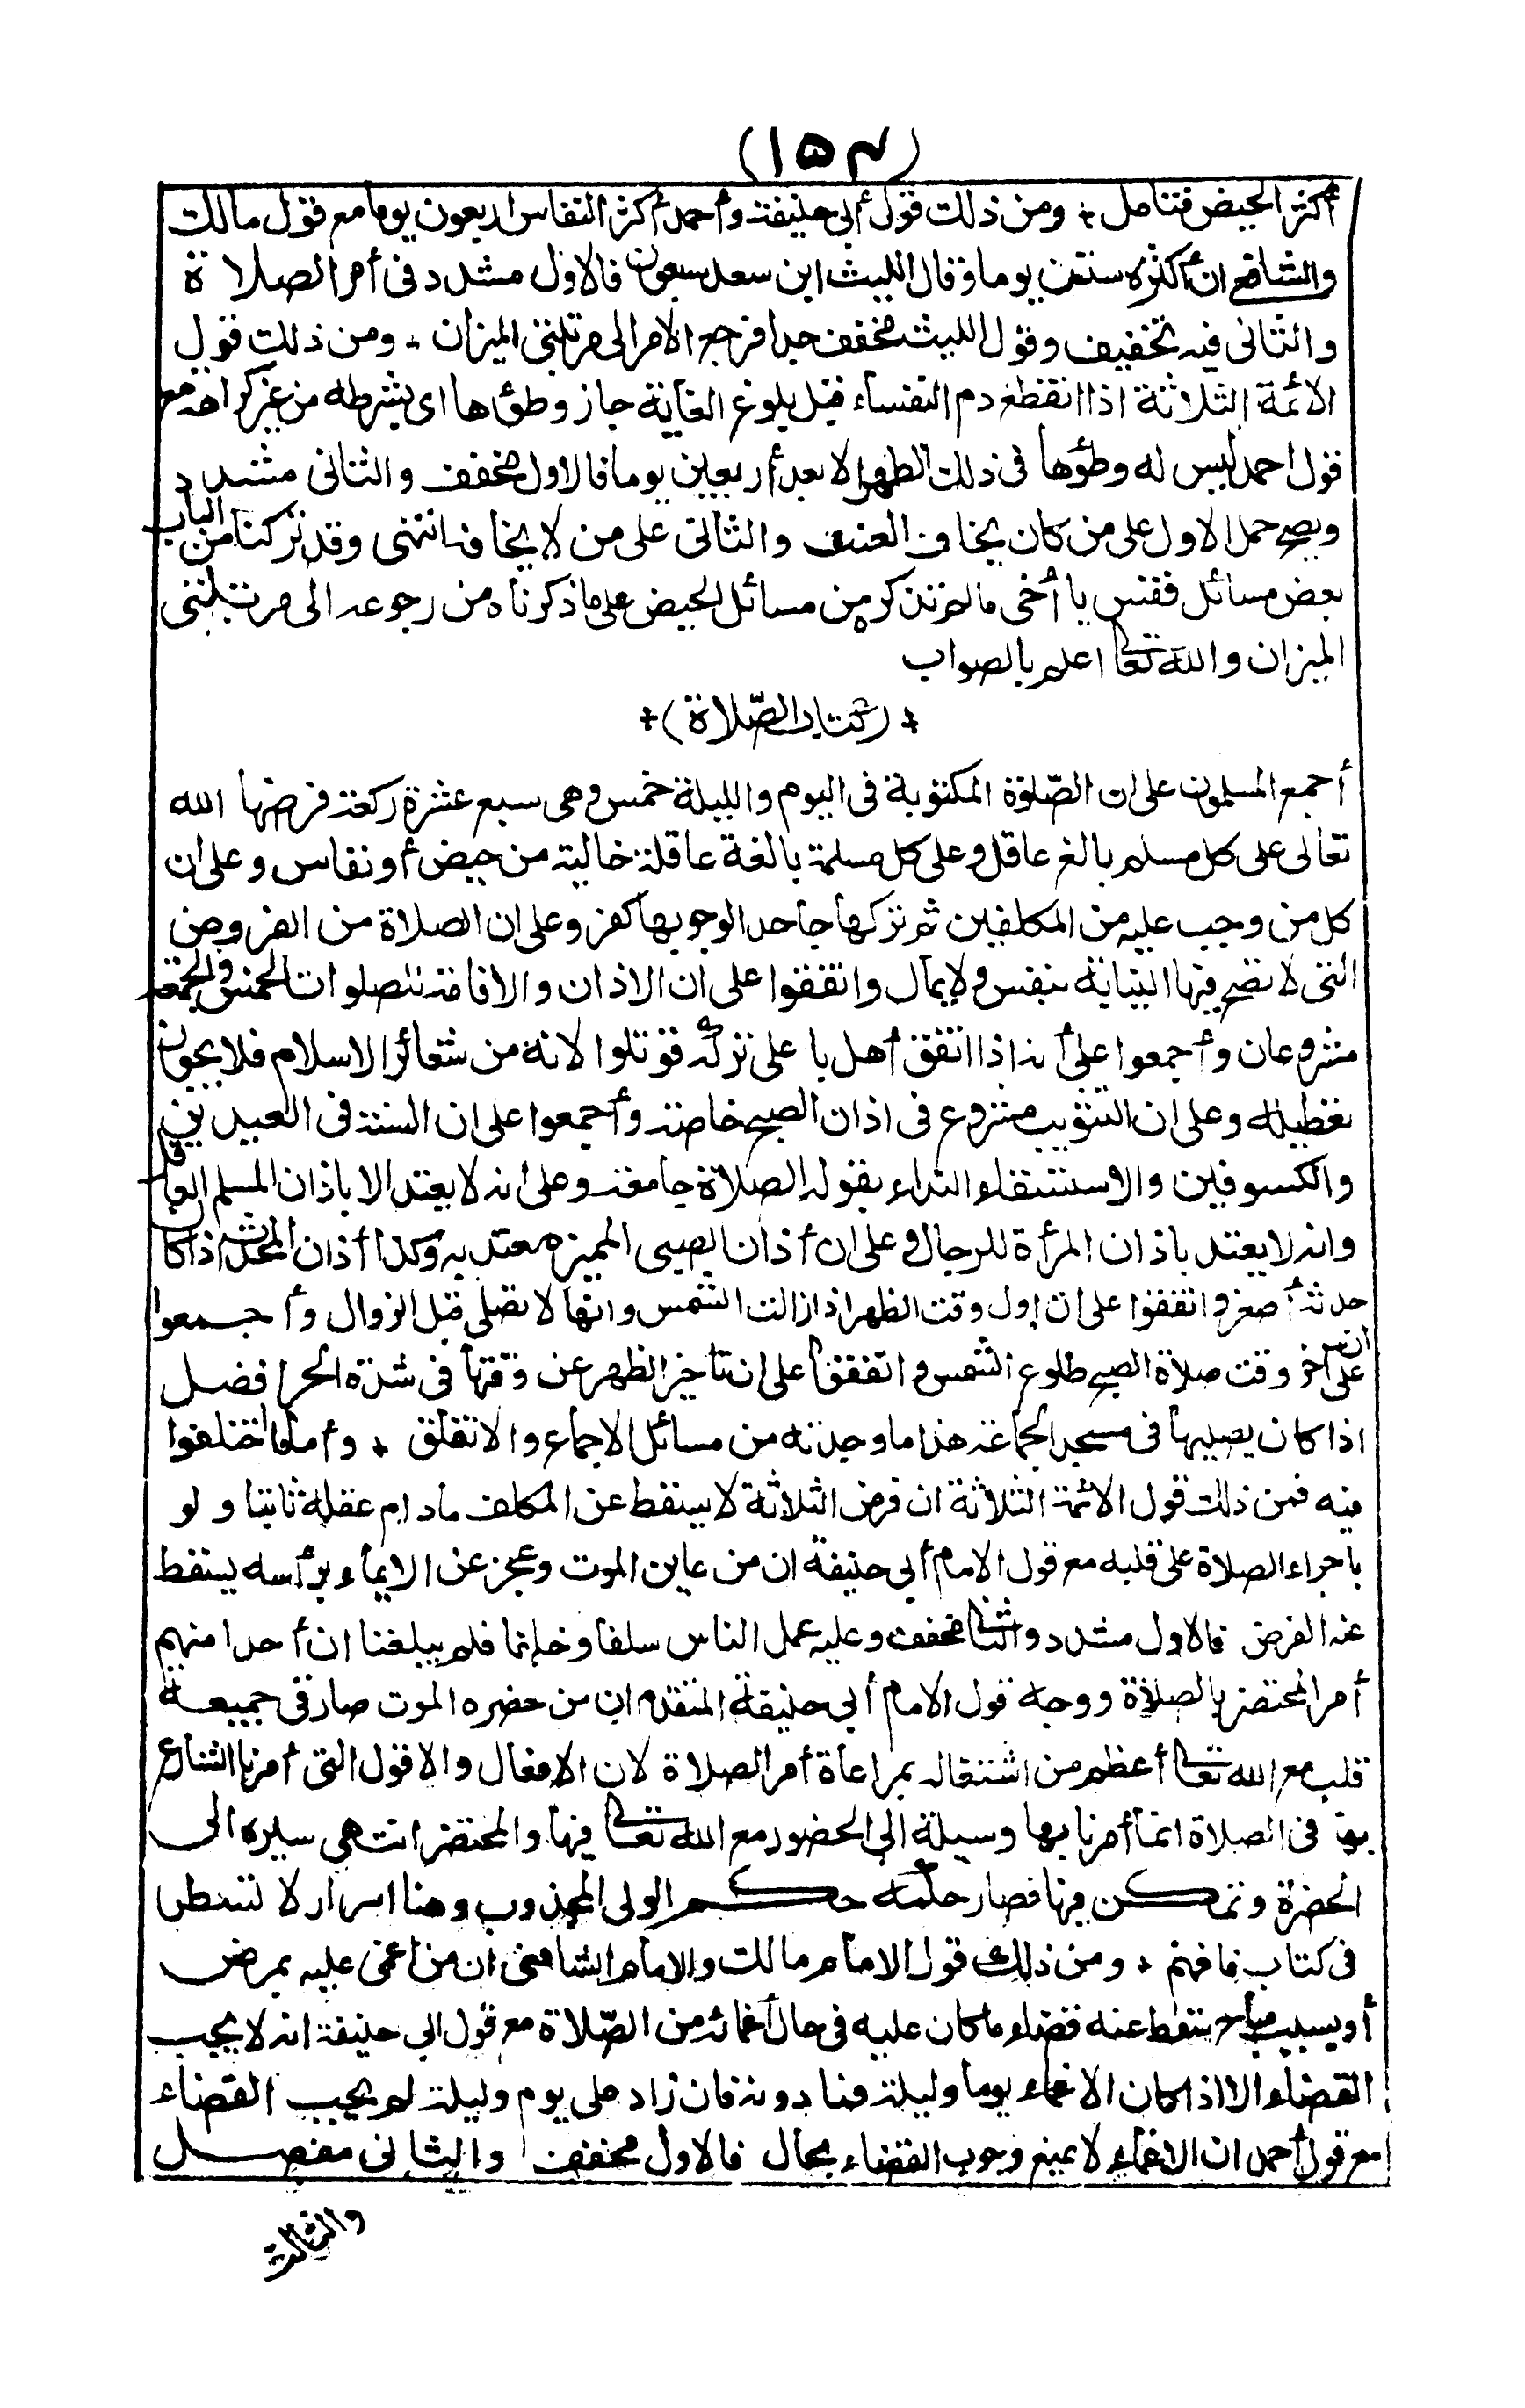 (١٥٤)
أكثر الحيض فتأمل * ومن ذلك قول أبي حنيفة وأحمد أكثر النفاس اربعون يوما مع قول مالك
والشافعي ان أكثره ستين يوما وقال الليث ابن سعد سبعون فالاول مشدد في أمر الصلاة
والثاني فيه تخفيف وقول الليث مخفف جدا فرجع الامر الى مرتبتي الميزان * ومن ذلك قول
الائمة الثلاثة اذا انقطع دم النفساء قبل بلوغ الغاية جاز وطؤها اى بشرطه من غير كراهة مع
قول احمد ليس له وطؤها في ذلك الطهر الا بعد أربعين يوما فالاول مخفف والثاني مشدد
ويصح حمل الاول على من كان يخاف العنت والثاني على من لا يخافه انتهى وقد تركنا من الباب
بعض مسائل فقس يا أخي ما لم نذكره من مسائل الحيض على ما ذكرناه من رجوعه الى مرتبتي
الميزان والله تعالى اعلم بالصواب
* (كتاب الصّلاة) *
أجمع المسلمون على ان الصّلوة المكتوبة في اليوم والليلة خمس وهى سبع عشرة ركعة فرضها الله
تعالى على كل مسلم بالغ عاقل وعلى كل مسلمة بالغة عاقلة خالية من حيض أو نفاس وعلى ان
كل من وجب عليه من المكلفين ثم تركها جاحدا لوجوبها كفر وعلى ان الصلاة من الفروض
التي لا تصح فيها النيابة بنفس ولا بمال واتفقوا على ان الاذان والاقامة للصلوات الخمس والجمعة
مشروعان وأجمعوا على أنه اذا اتفق أهل با على تركه قوتلوا لانه من شعائر الاسلام فلا يجوز
تعطيله وعلى ان التثويب مشروع في اذان الصبح خاصة وأجمعوا على ان السنة في العيدين
والكسوفين والاستسقاء النداء بقوله الصلاة جامعة وعلى أنه لا يعتد الا باذان المسلم العاقل
وانه لا يعتد باذان المرأة للرجال وعلى ان أذان الصبي المميز معتد به وكذا أذان المحدث اذا كان
حدثه أصغر واتفقوا على ان اول وقت الظهر اذا زالت الشمس وانها لا تصلى قبل الزوال وأجمعوا
على ان آخر وقت صلاة الصبح طلوع الشمس واتفقوا على ان تأخير الظهر عن وقتها في شدة الحر افضل
اذا كان يصليها في مسجد الجماعة هذا ما وجدته من مسائل الاجماع والاتفاق * وأما ما اختلفوا
فيه فمن ذلك قول الائمة الثلاثة ان فرض الثلاثة لا يسقط عن المكلف مادام عقله ثابتا ولو
باجراء الصلاة على قلبه مع قول الامام أبي حنيفة ان من عاين الموت وعجز عن الايماء برأسه يسقط
عنه الفرض فالاول مشدد والثاني مخفف وعليه عمل الناس سلفا وخلفا فلم يبلغنا ان أحدا منهم
أمر المحتضر بالصلاة ووجه قول الامام أبي حنيفة المتقدم ان من حضره الموت صار في جميعة
قلب مع الله تعالى أعظم من اشتغاله بمراعاة أمر الصلاة لان الافعال والاقوال التي أمرنا الشارع
بها في الصلاة انما أمرنا بها وسيلة الى الحضور مع الله تعالى فيها والمحتضر انتهى سيره الى
الحضرة وتمكن فيها فصار حكمه حكم الولى المجذوب وهنا اسرار لا تسطر
في كتاب فافهم * ومن ذلك قول الامام مالك والامام الشافعي ان من اغمى عليه بمرض
أو بسبب مباح سقط عنه قضاء ما كان عليه في حال أغمائه من الصّلاة مع قول ابي حنيفة انه لا يجب
القضاء الا اذا كان الاغماء يوما وليلة فما دونه فان زاد على يوم وليلة لم يجب القضاء
مع قول أحمد ان الاغماء لا يمنع وجوب القضاء بحال فالاول مخفف والثاني مفصل
والثالث